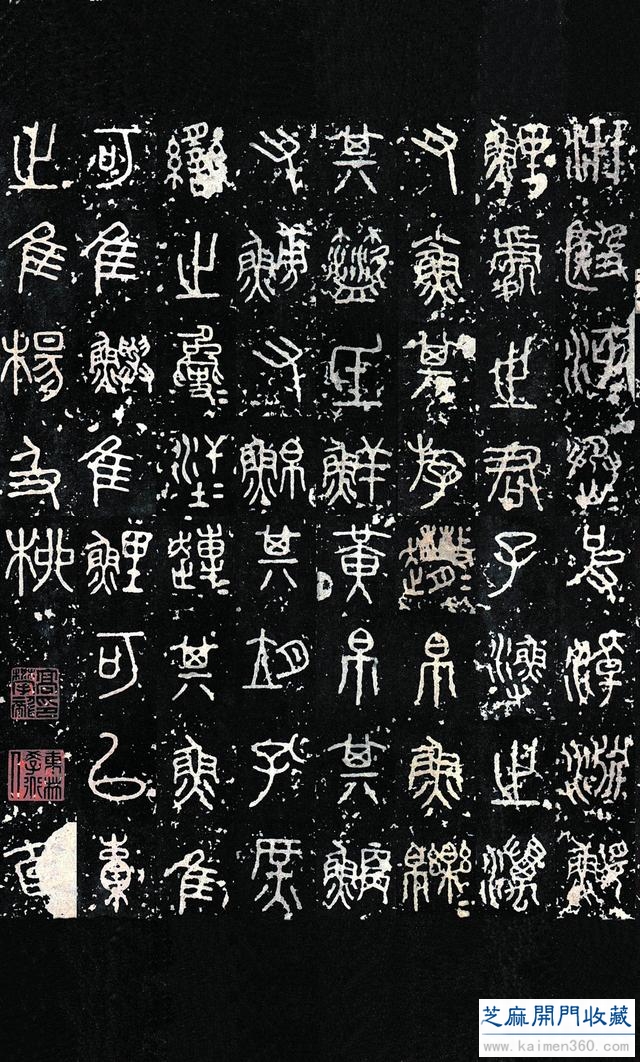 汧殹沔丞皮淖淵鰋
鯉處之君子漁之澫
又小魚其斿趣帛魚皪
其盜氐鮮黃帛其鯿
又鰟又鮊其朔孔庶
臠之夐汗趩其魚隹
可隹鱮隹鯉可以橐
之隹楊及柳
芝麻開門收藏
www.kaimen360.com